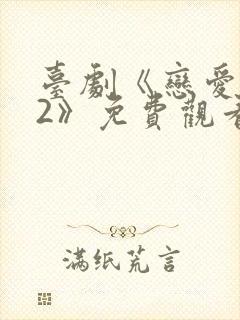 臺劇《戀愛
2》免費觀看
满纸荒言